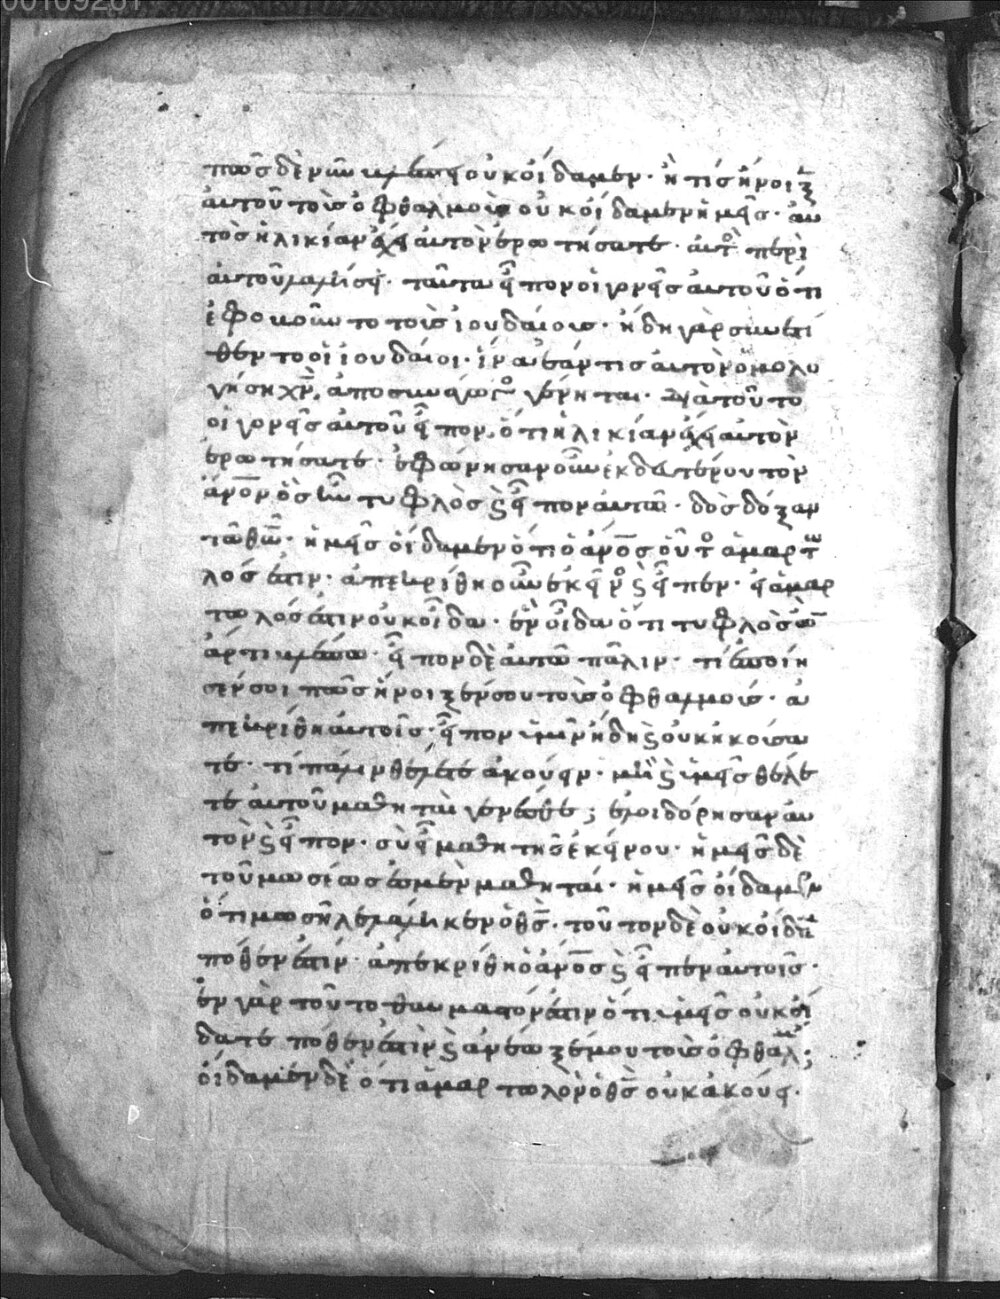 πῶς δὲ νῦν βλέπει οὐκ οἴδαμεν· ἢ τίς ἤνοιξ
αὐτοῦ τοὺς ὀφθαλμοὺς οὐκ οἴδαμεν ἡμεῖς· αὐ
τὸς ἡλικίαν ἔχει αὐτὸν ἐρωτήσατε· αὐτὸς περὶ
αὐτοῦ λαλήσει· ταῦτα εἶπον οἱ γονεῖς αὐτοῦ ὅτι
ἐφοβοῦντο τοὺς ἰουδαίους· ἤδη γὰρ συνετέ
θειντο οἱ ἰουδαῖοι· ἵνα ἐάν τις αὐτὸν ὁμολο
γήση χν, ἀποσυνάγωγος γένηται· διὰ τοῦτο
οἱ γονεῖς αὐτοῦ εἶπον, ὅτι ἡλικίαν ἔχει αὐτὸν
ἐρωτήσατε· ἐφώνησαν οὖν ἐκ δευτέρου τὸν
ἄνον ὃς ἦν τυφλὸς καὶ εἶπον αὐτῶ· δὸς δόξαν
τῶ θω· ἡμεῖς οἴδαμεν ὅτι ὁ ἄνος οὗτος ἁμαρτω
λός ἐστιν· ἀπεκρίθη οὖν ἐκεῖνος καὶ εἶπεν· εἰ ἁμαρ
τωλός ἐστιν οὐκ οἶδα· ἓν οἶδα ὅτι τυφλὸς ὢν
ἄρτι βλέπω· εἶπον δὲ αὐτῶ πάλιν· τί ἐποίη
σέν σοι πῶς ἤνοιξέν σου τοὺς ὀφθαλμούς· ἀ
πεκρίθη αὐτοῖς· εἶπον ὑμῖν ἤδη καὶ οὐκ ἠκούσα
τε· τί πάλιν θέλετε ἀκούειν· μὴ καὶ ὑμεῖς θέλε
τε αὐτοῦ μαθηταὶ γενέσθε; ἐλοιδόρησαν αὐ
τὸν καὶ εἶπον· σὺ εἶ μαθητὴς ἐκείνου· ἡμεῖς δὲ
τοῦ μωσέως ἐσμὲν μαθηταί· ἡμεῖς οἴδαμεν
ὅτι μωσῆ λελάληκεν ὁ θς· τοῦτον δὲ οὐκ οἴδαμεν
πόθεν ἐστίν· ἀπεκρίθη ὁ ἄνος καὶ εἶπεν αὐτοῖς·
ἐν γὰρ τοῦτο θαυμαστόν ἐστιν ὅτι ὑμεῖς οὐκ οἴ
δατε πόθεν ἐστὶν καὶ ἀνέωξέ μου τοὺς ὀφθαλμ;
οἴδαμεν δὲ ὅτι ἁμαρτωλὸν ὁ θς οὐκ ἀκούει·